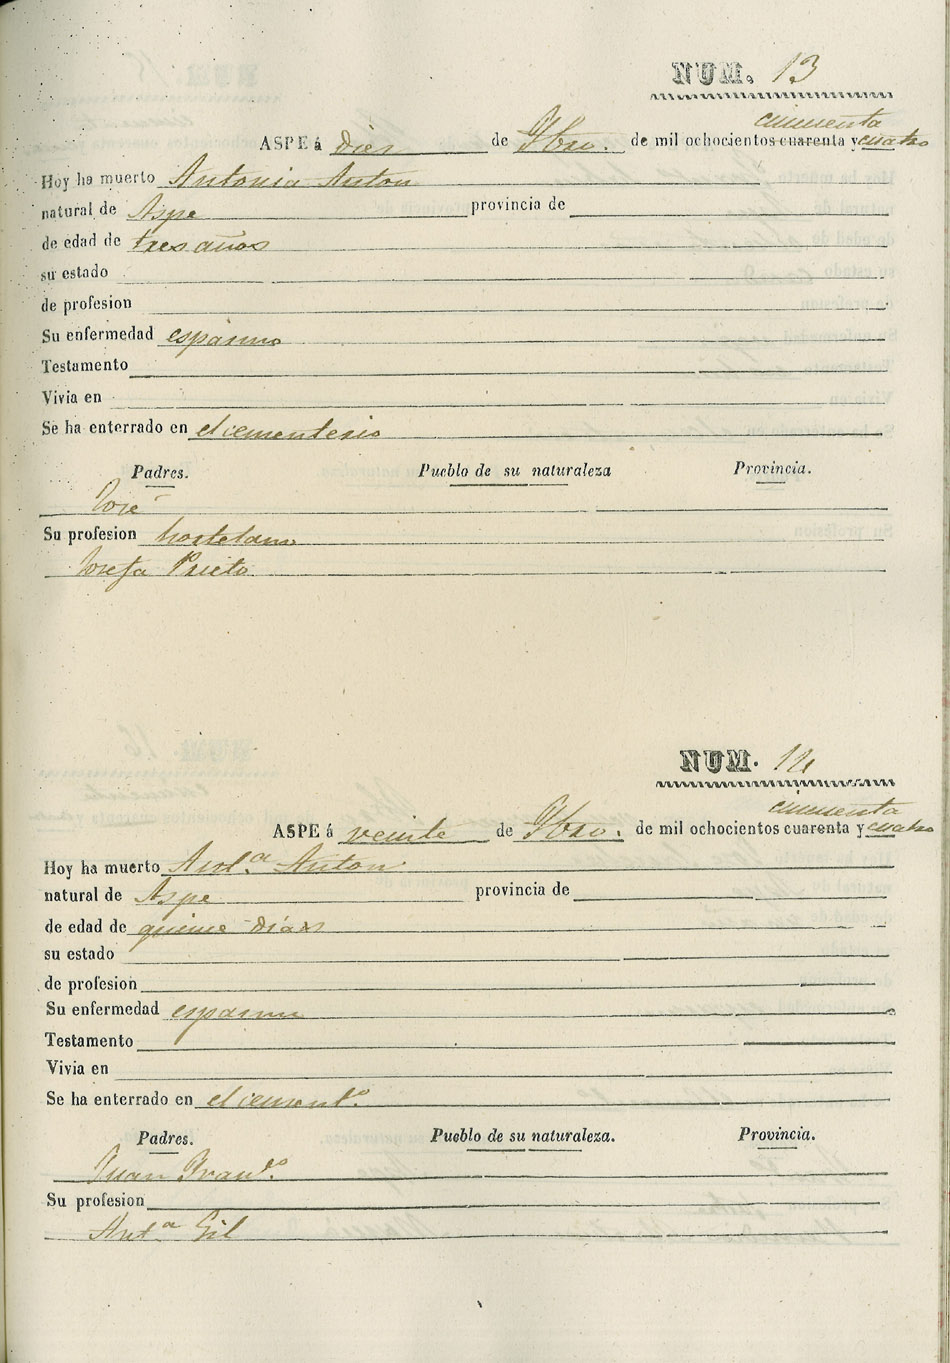 NUM. 13
cincuenta
ASPE á diez de 9bre. de mil ochocientos cuarenta y cuatro
Hoy ha muerto Antonia Anton
natural de Aspe provincia de
de edad de tres años
su estado
de profesion
Su enfermedad espasmo
Testamento
Vivia en
Se ha enterrado en el cementerio
Padres. Pueblo de su naturaleza Provincia.
José
Su profesion hortelano
Josefa Prieto
NUM. 14
cincuenta
ASPE á veinte de 9bre. de mil ochocientos cuarenta y cuatro
Hoy ha muerto Ant.ª Anton
natural de Aspe provincia de
de edad de quince dias
su estado
de profesion
Su enfermedad espasmo
Testamento
Vivia en
Se ha enterrado en el cement.º
Padres. Pueblo de su naturaleza. Provincia.
Juan Fran.co
Su profesion
Ant.ª Gil